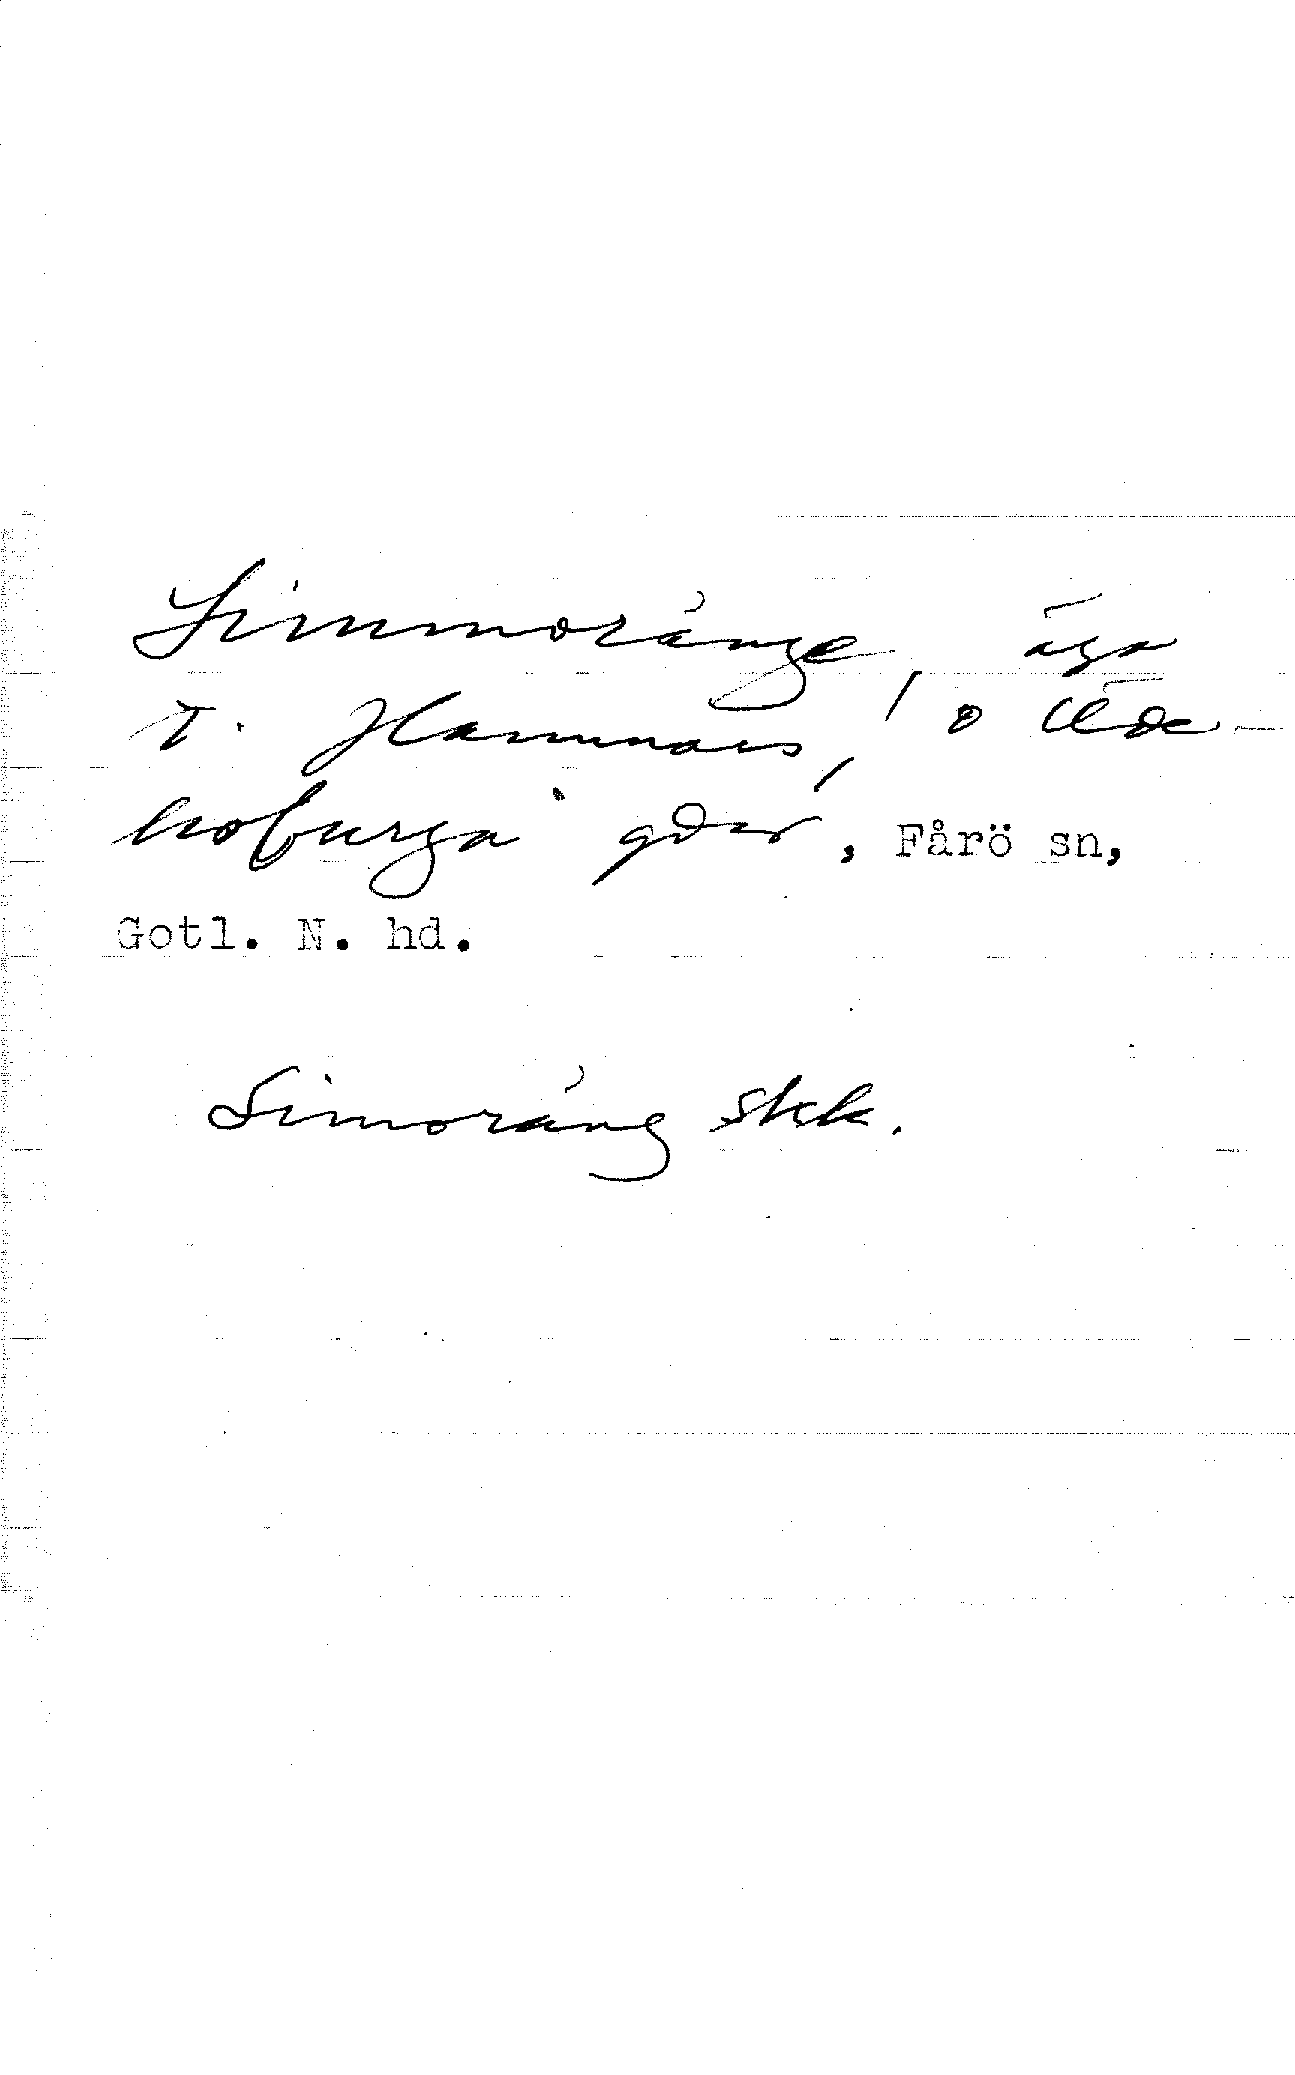 Simmoränge, äga
t. Hammars, o Öde-
hoburga gdar, Fårö sn,
Gotl. N. hd.
Simoräng skk.